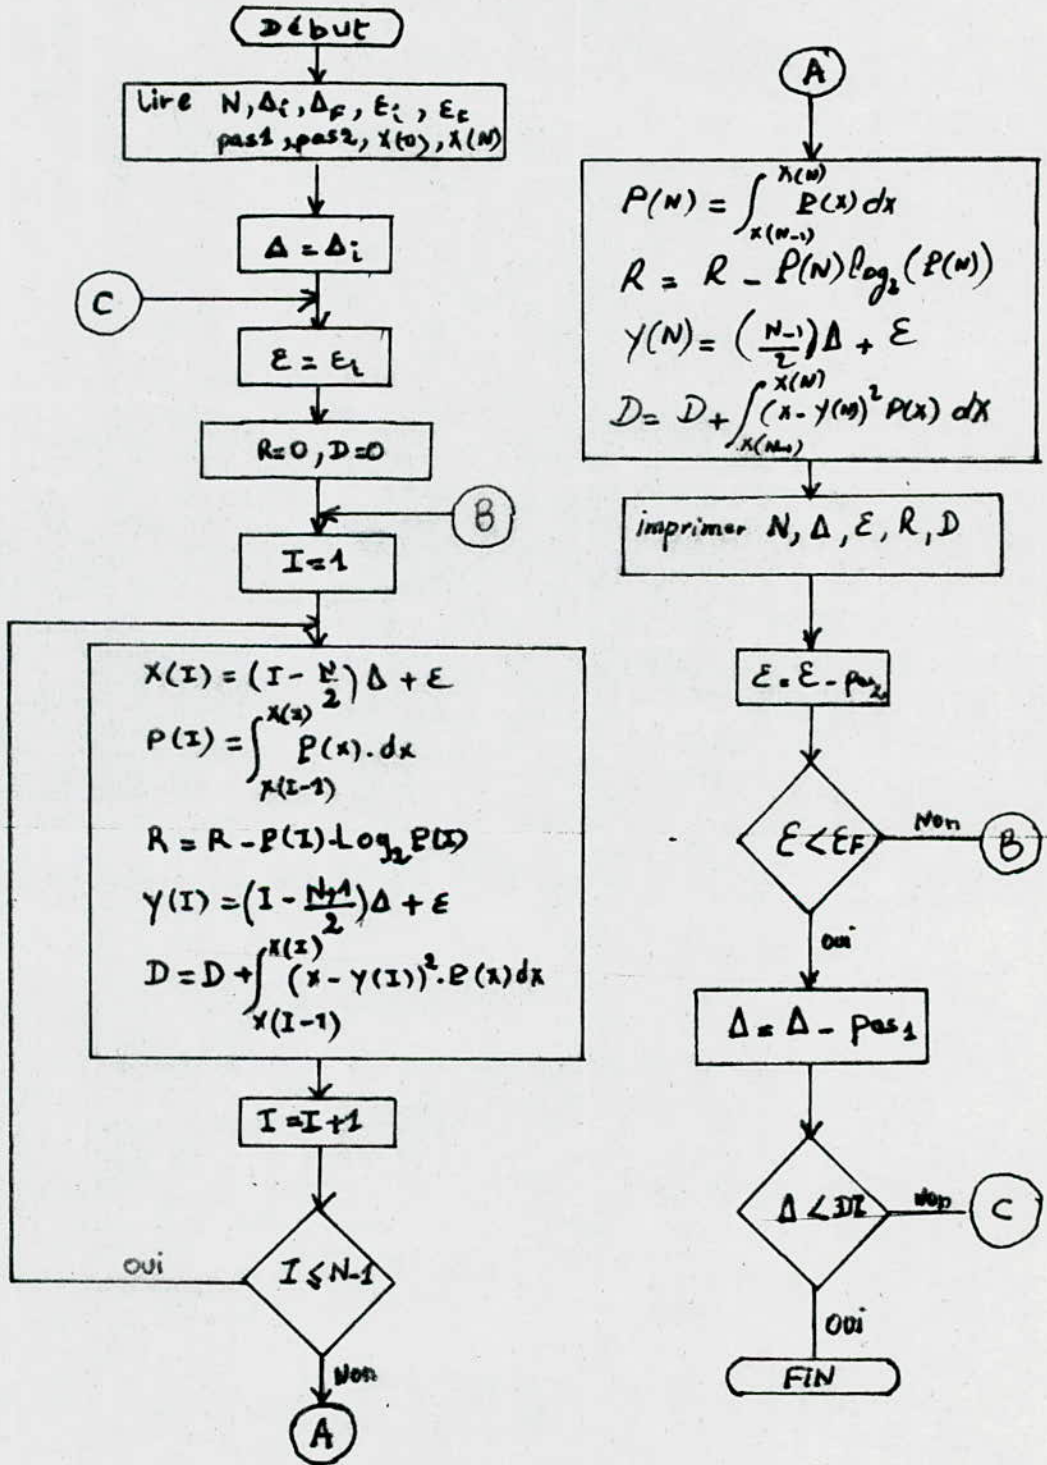 Début
Lire N, Δi, ΔF, Ei, Ef
pas1, pas2, X(0), X(N)
Δ = Δi
C
ε = εi
R=0, D=0
B
I=1
X(I) = (I - N/2)Δ + ε
P(I) = ∫_{X(I-1)}^{X(I)} P(x).dx
R = R - P(I).Log₂ P(I)
Y(I) = (I - N+1/2)Δ + ε
D = D + ∫_{X(I-1)}^{X(I)} (x - Y(I))².P(x)dx
I = I+1
I ≤ N-1
oui
Non
A
A
P(N) = ∫_{X(N-1)}^{X(N)} P(x) dx
R = R - P(N) log₂(P(N))
Y(N) = (N-1/2)Δ + ε
D = D + ∫_{X(N-1)}^{X(N)} (x - Y(N))² P(x) dx
imprimer N, Δ, ε, R, D
ε = ε - pas₂
ε < εF
Non
B
oui
Δ = Δ - pas₁
Δ < DI
Non
C
Oui
FIN